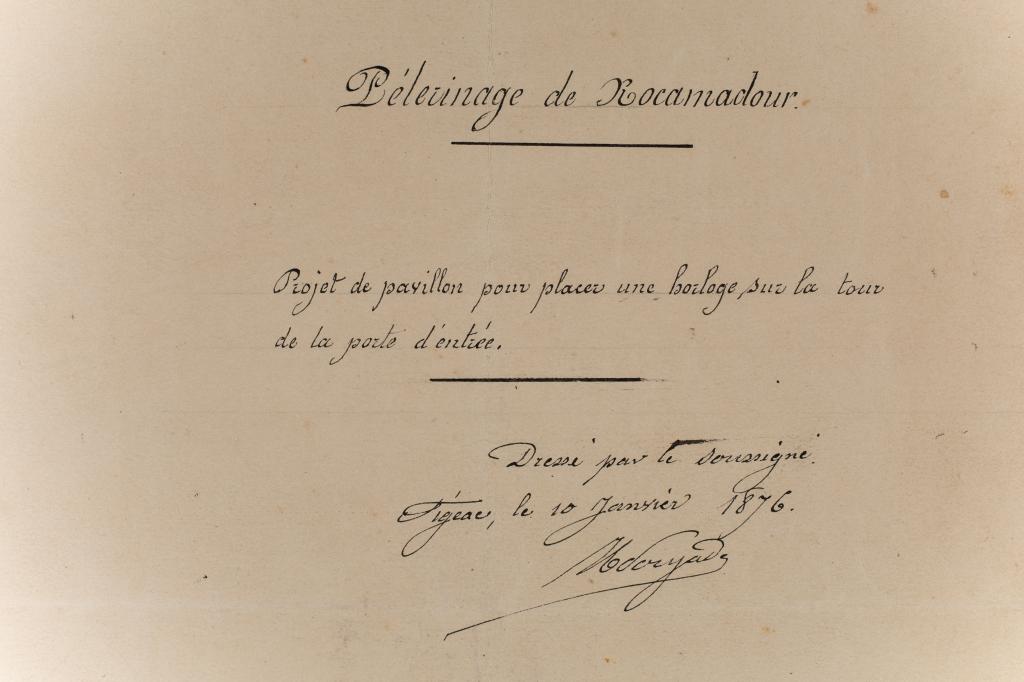 Pélerinage de Rocamadour.
Projet de pavillon pour placer une horloge, sur la tour
de la porte d'éntrée.
Dressé par le soussigné.
Figeac, le 10 Janvier 1876.